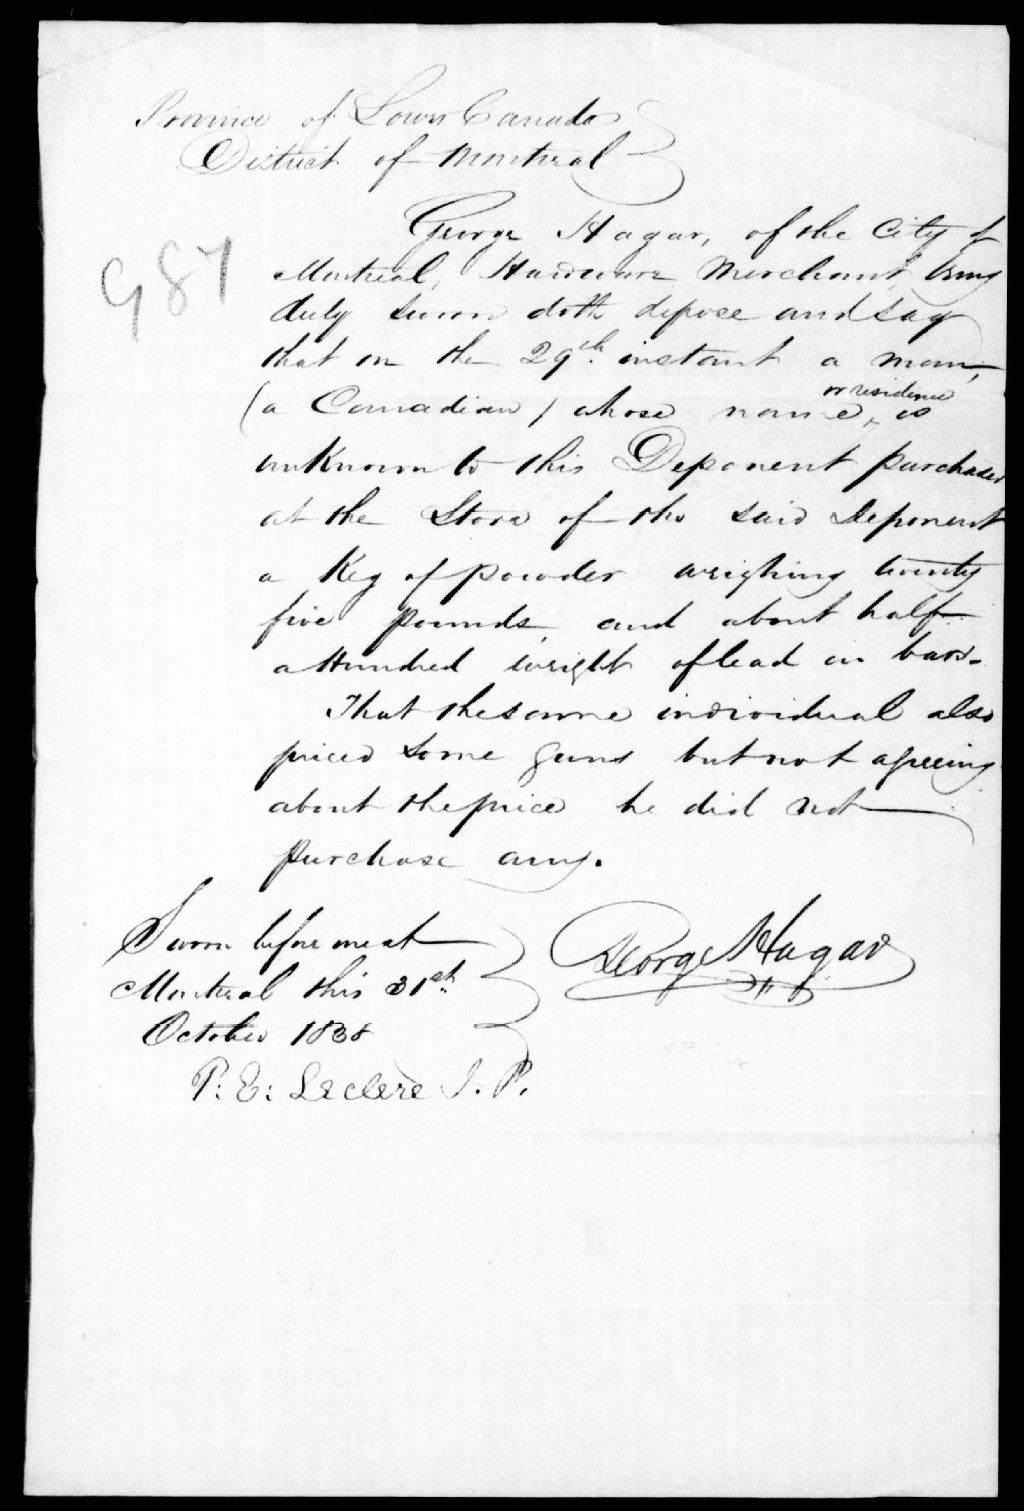 Province of Lower Canada
District of Montreal
George Hagar, of the City of
G 87
Montreal, Hardware Merchant, being
duly sworn doth depose and say
that on the 29th. instant a man,
(a Canadian) whose name or residence is
unknown to this Deponent purchased
at the Store of the said Deponent
a Keg of powder weighing twenty
five pounds, and about half
a Hundred weight of lead in bars.
That the same individual also
priced some guns but not agreeing
about the price he did not
purchase any.
Sworn before me at
Montreal this 31st.
October 1838
George Hagar
P: E: Leclere J. P.